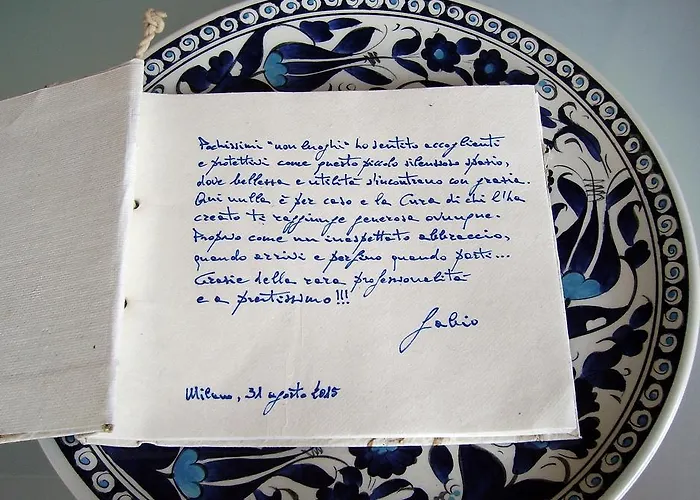 Pochissimi "non luoghi" ho sentito accoglienti
e protettivi come questo piccolo silenzioso spazio,
dove bellezza e utilità s'incontrano con grazia.
Qui nulla è per caso e la Cura di chi l'ha
creato ti raggiunge generosa ovunque.
Proprio come un inaspettato abbraccio,
quando arrivi e perfino quando parti...
Grazie della rara professionalità
e a prestissimo!!!
Fabio
Milano, 31 agosto 2015